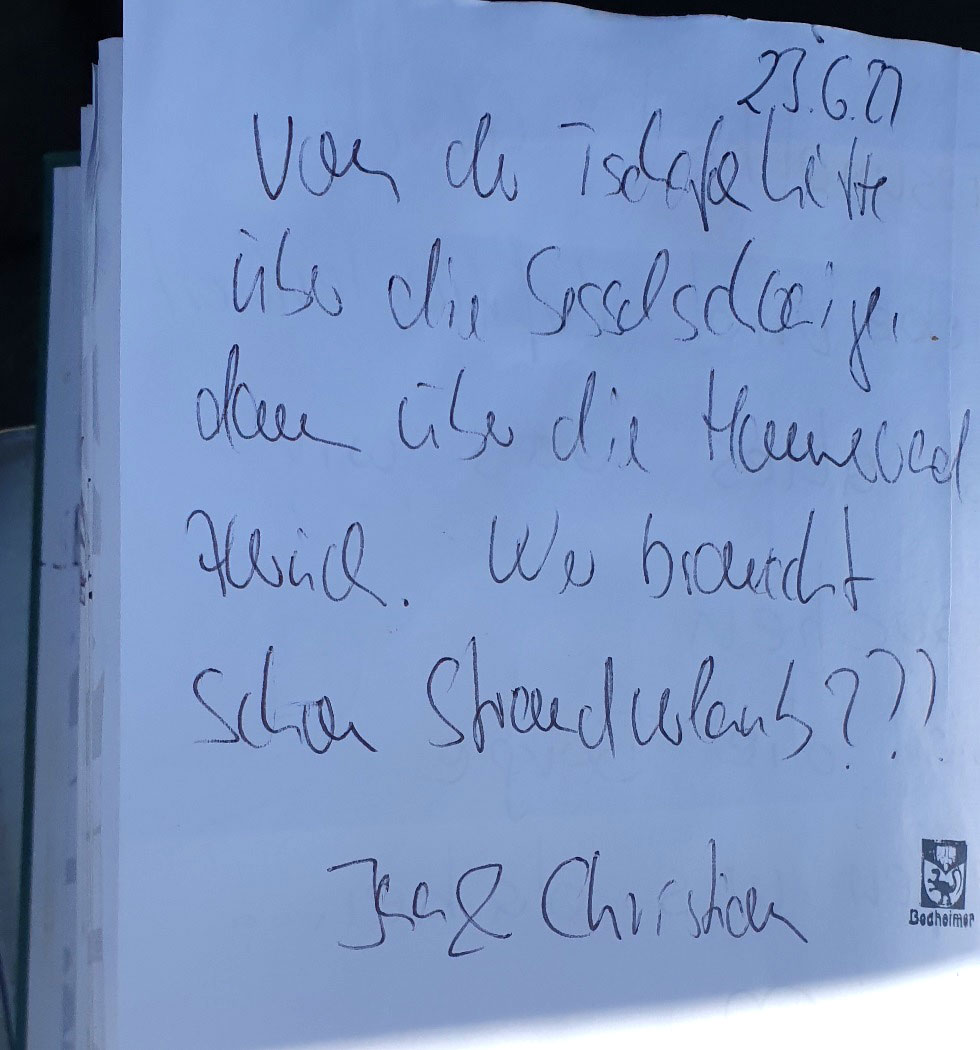 23.6.21
Von der Tschafonhütte
über die Sesselschwaige,
dann über die Hammerwand
zurück. Wer braucht
schon Strandurlaub???
& Christian
Bodheimer